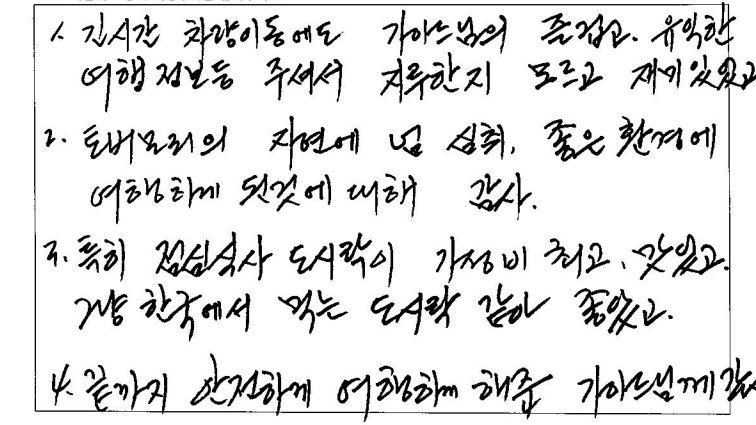 1. 긴시간 차량이동에도 가이드님의 즐겁고. 유익한
여행정보등 주셔서 지루한지 모르고 재미있었고
2. 토버모리의 자연에 넘 심취, 좋은 환경에
여행하게 된것에 대해 감사.
3. 특히 점심식사 도시락이 가성비 최고, 맛있고.
그냥 한국에서 먹는 도시락 같아 좋았고.
4. 끝까지 안전하게 여행하게 해준 가이드님께